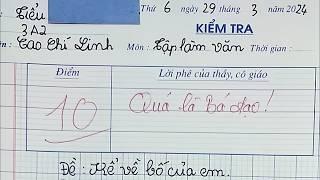 Tiểu
Thứ 6 ngày 29 tháng 3 năm 2024
3A2
KIỂM TRA
ên: Cao Chí Linh Môn: Tập làm văn Thời gian:
Điểm
Lời phê của thầy, cô giáo
10
Quá là Bá đạo!
Đề: Kể về bố của em.